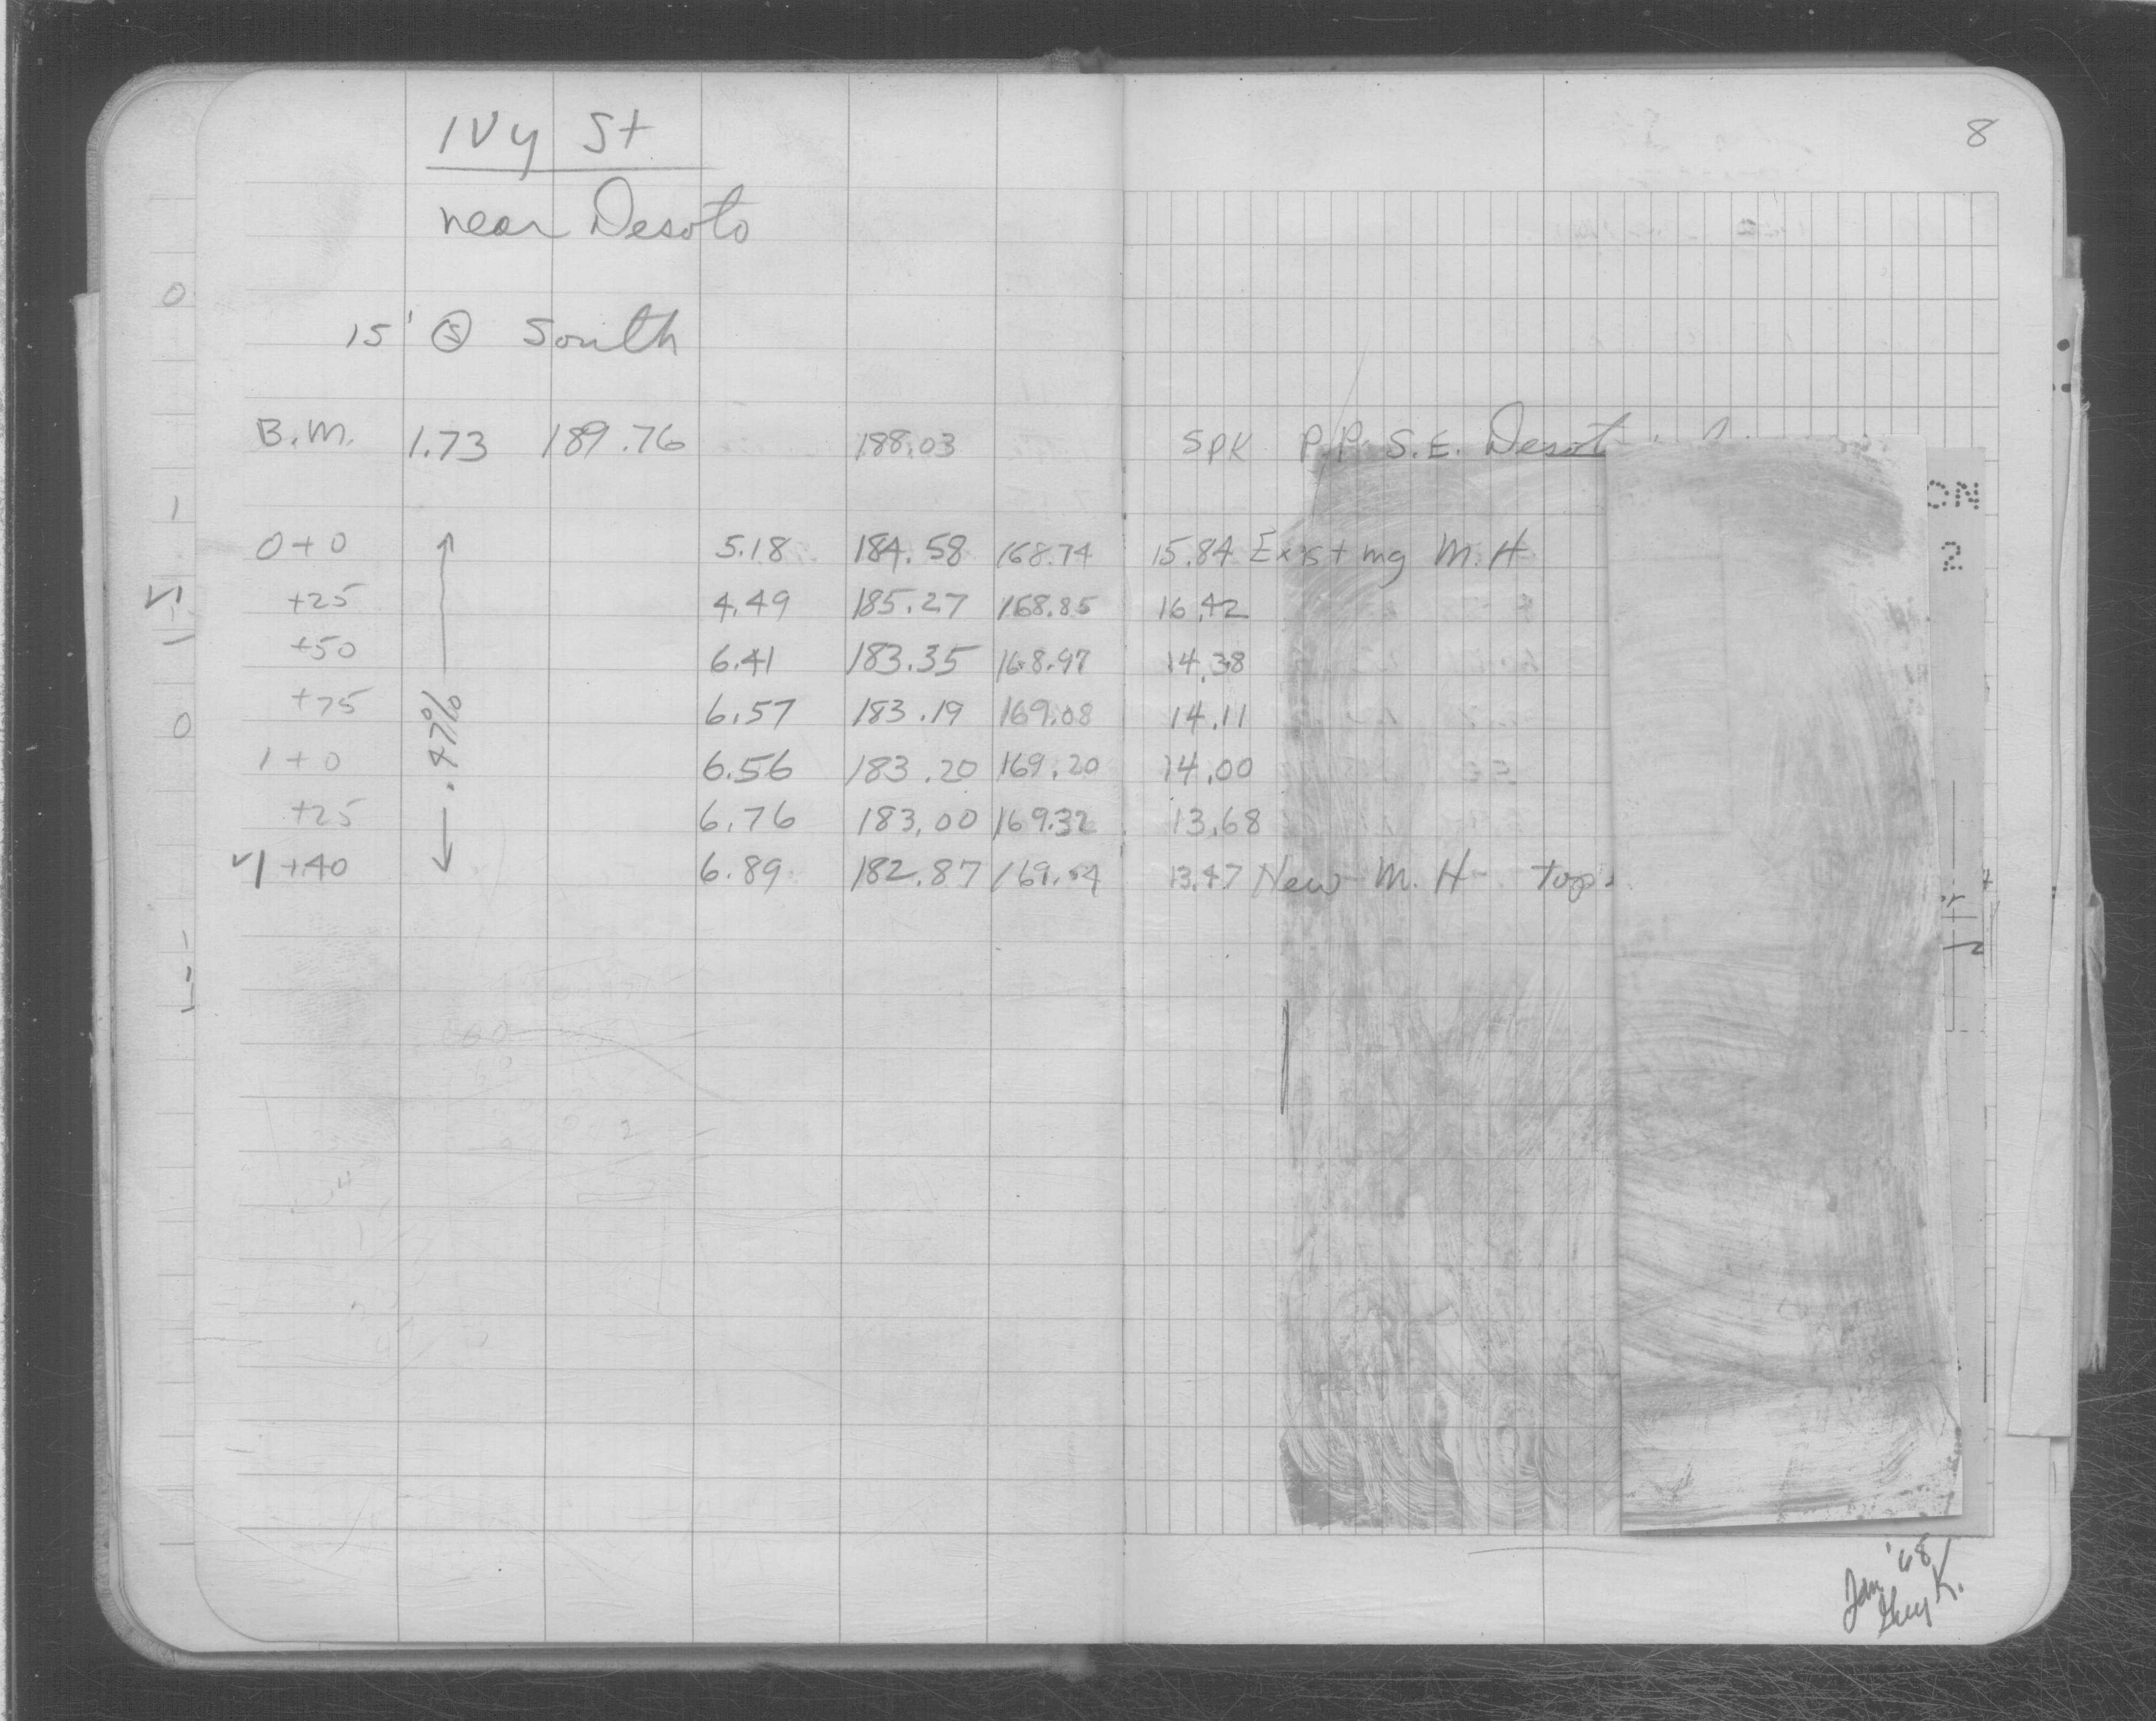 8
Ivy St
near Desoto
15' Ⓢ South
B.M. 1.73 189.76 188.03 SPK P.P. S.E. Desot
0+0 5.18 184.58 168.74 15.84 Existing M.H
+25 4.49 185.27 168.85 16.42
+50 6.41 183.35 168.97 14.38
+75 6.57 183.19 169.08 14.11
.47%
1+0 6.56 183.20 169.20 14.00
+25 6.76 183.00 169.32 13.68
√1+40 6.89 182.87 13.47 New M.H- top
ON
2
Jan '68
Guy K.